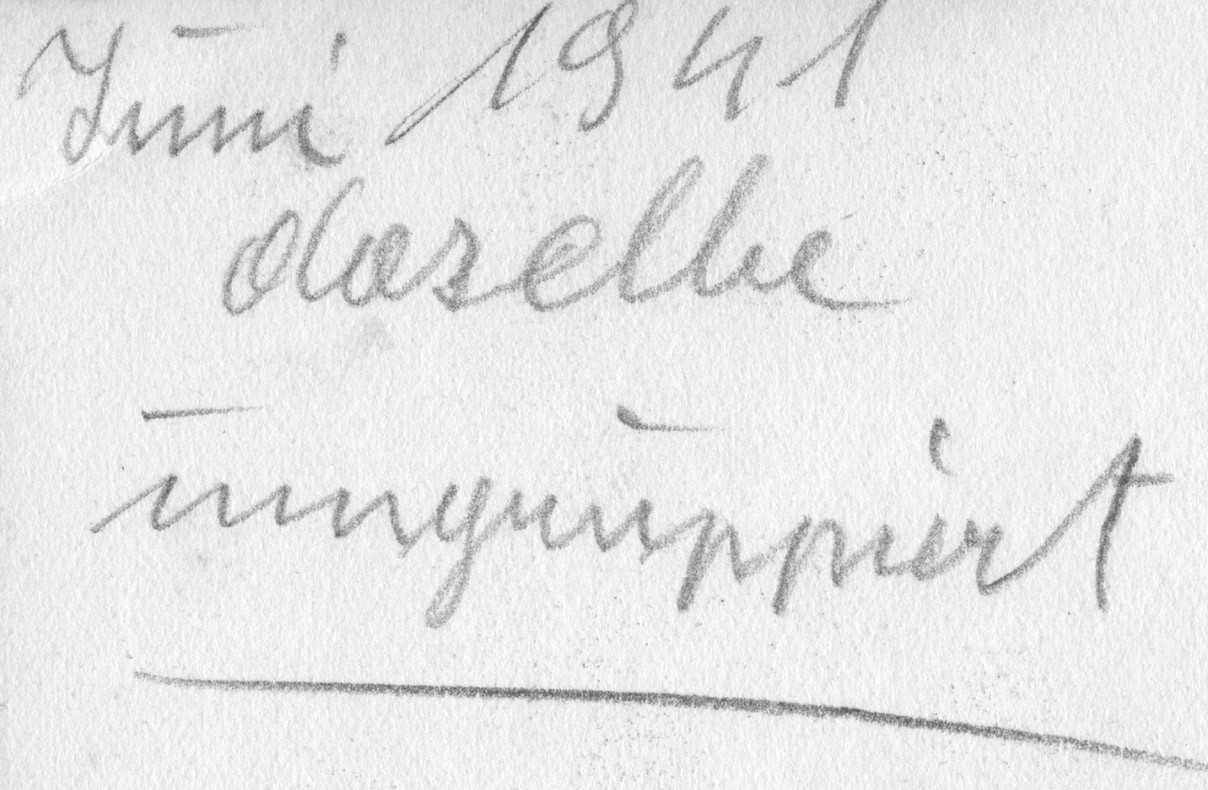 Juni 1941
daselbe
umgruppiert